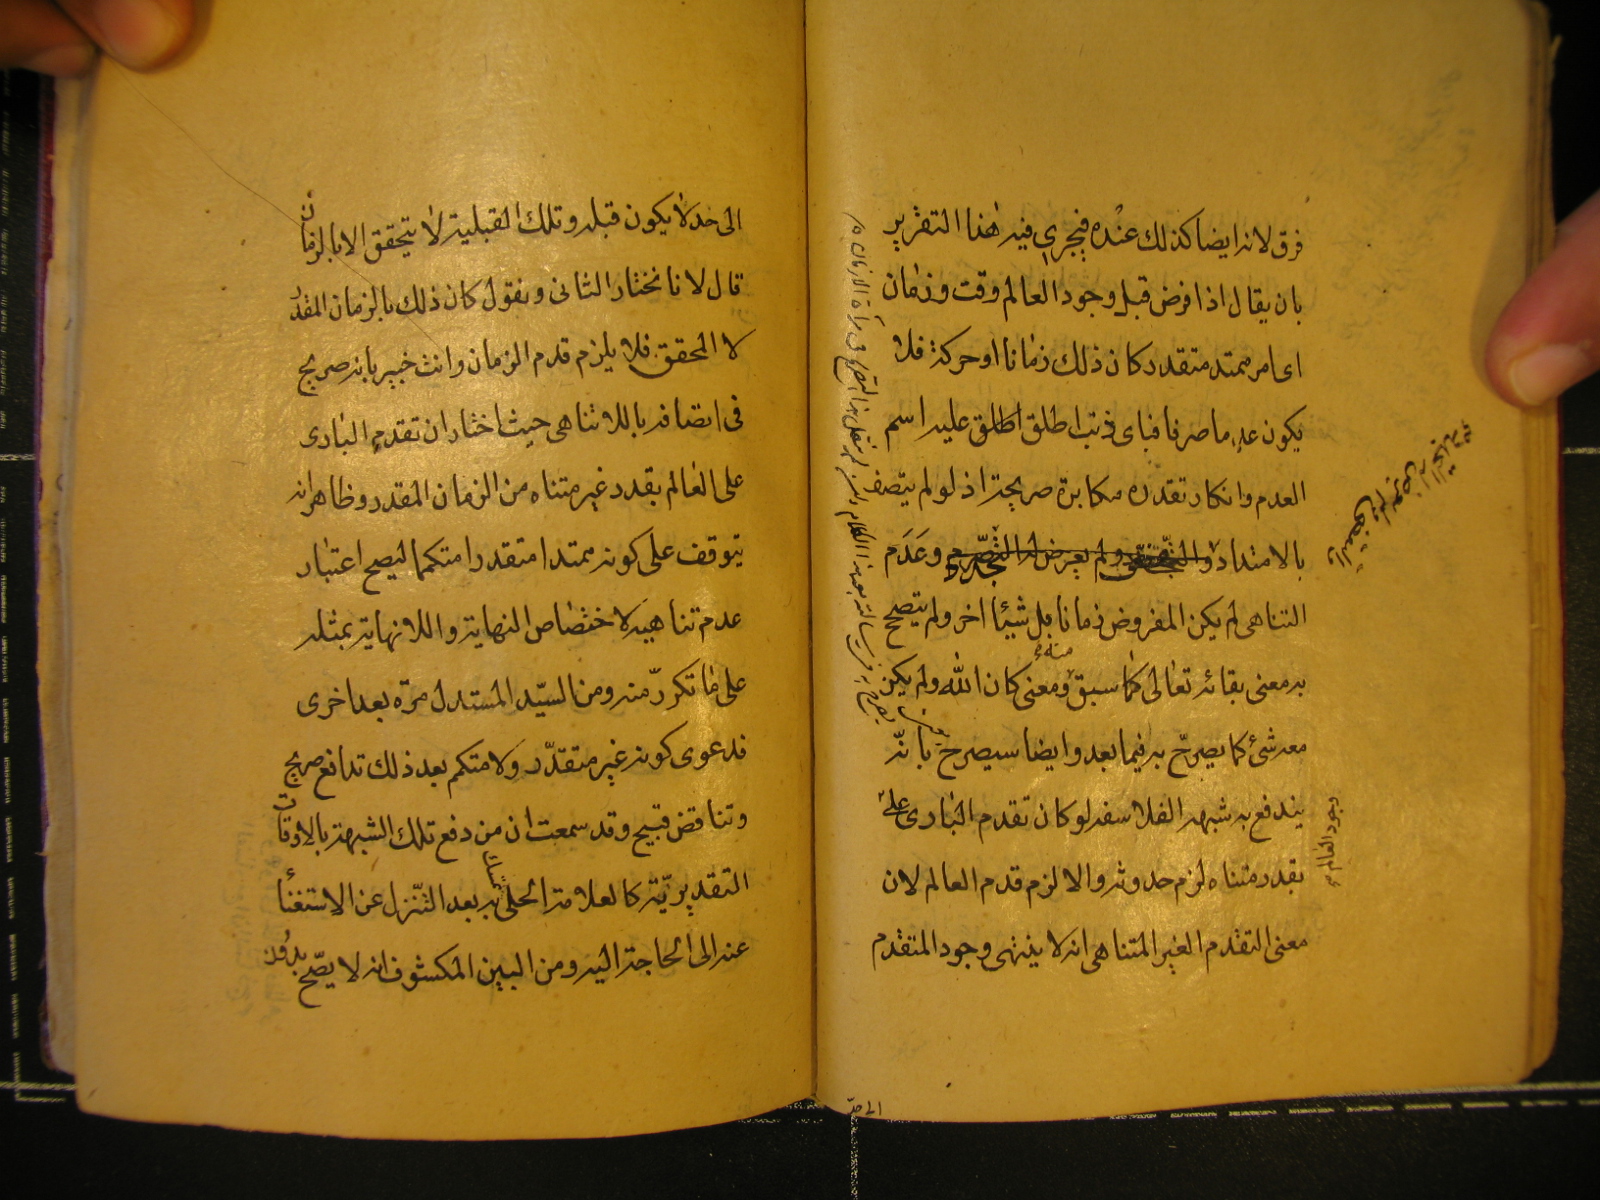 فرق لانه ايضا كذلك عنده فيجرى فيه هذا التقرير
بان يقال اذا فرض قبل وجود العالم وقت وزمان
اى امر ممتد متقدر كان ذلك زمانا او حركة فلا
يكون عدما صرفا فباى اطلق اطلق عليه اسم
العدم وانكار تقدره مكابرة صريحة اذ لو لم يتصف
بالامتداد و ولم يعرض له وعدم
التناهى لم يكن المفروض زمانا بل شيئا اخر ولم يتصحح
به معنى بقائه تعالى كما سبق ومعنى كان الله ولم يكن
معه شئ كما يصرح به فيما بعد وايضا سيصرح بانه
يندفع به شبهة الفلاسفة لو كان تقدم البارى على
وجود العالم
بقدر متناه لزم حدوثه والا لزم قدم العالم لان
معنى التقدم الغير المتناهى انه لا ينتهى وجود المتقدم
الى حد
الى حد لا يكون قبله وتلك القبلية لا يتحقق الا بالزمان
قال لانا نختار الثانى ونقول كان ذلك بالزمان المقدر
لا المحقق فلا يلزم قدم الزمان وانت خبير بانه صريح
فى اتصافه باللاتناهى حيث اختار ان تقدم البارى
على العالم بقدر غير متناه من الزمان المقدر وظاهر انه
يتوقف على كونه ممتدا متقدرا متكمما ليصح اعتبار
عدم تناهيه لاختصاص النهاية واللانهاية بمثله
على ما تكرر منه ومن السيد المستدل مرة بعد اخرى
فدعوى كونه غير متقدر ولا متكمم بعد ذلك تدافع صريح
وتناقض قبيح وقد سمعت ان من دفع تلك الشبهة بالاوقات
التقديرية كالعلامة الحلى تمسك به بعد التنزل عن الاستغناء
عنه الى الحاجة اليه ومن البين المكشوف انه لا يصح بدون